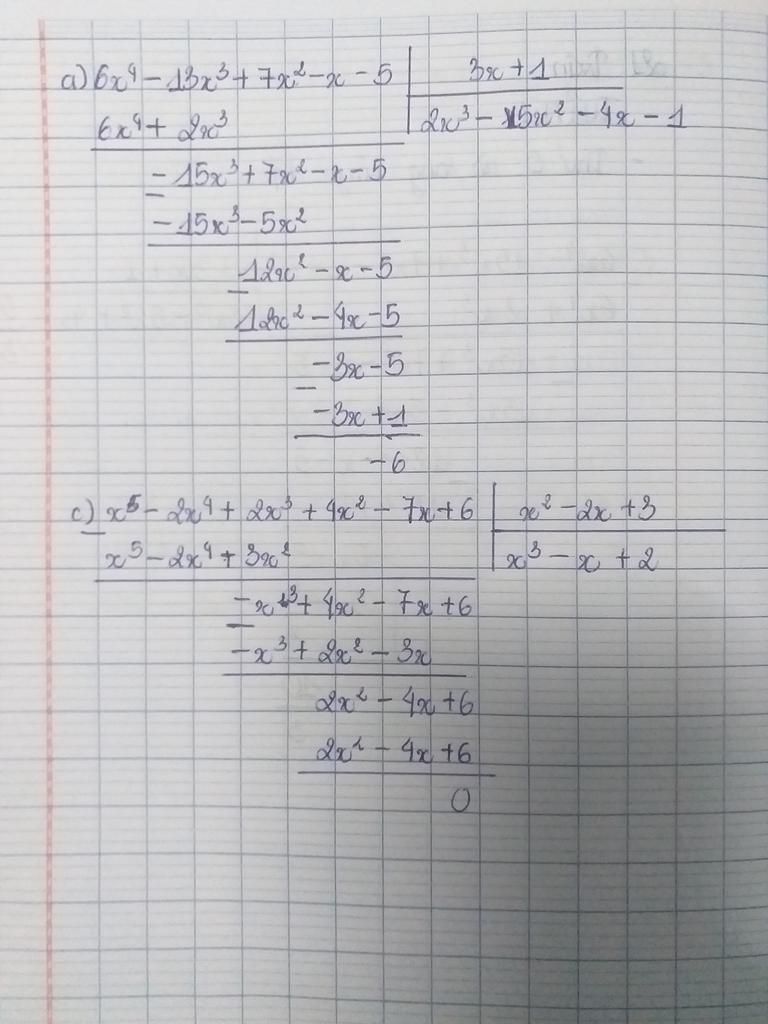 a) 6x⁴ - 13x³ + 7x² - x - 5 | 3x + 1
6x⁴ + 2x³ | 2x³ - 5x² - 4x - 1
- 15x³ + 7x² - x - 5
- 15x³ - 5x²
12x² - x - 5
12x² - 4x - 5
-3x - 5
-3x + 1
-6
c) x⁵ - 2x⁴ + 2x³ + 4x² - 7x + 6 | x² - 2x + 3
x⁵ - 2x⁴ + 3x² | x³ - x + 2
- x³ + 4x² - 7x + 6
- x³ + 2x² - 3x
2x² - 4x + 6
2x² - 4x + 6
0